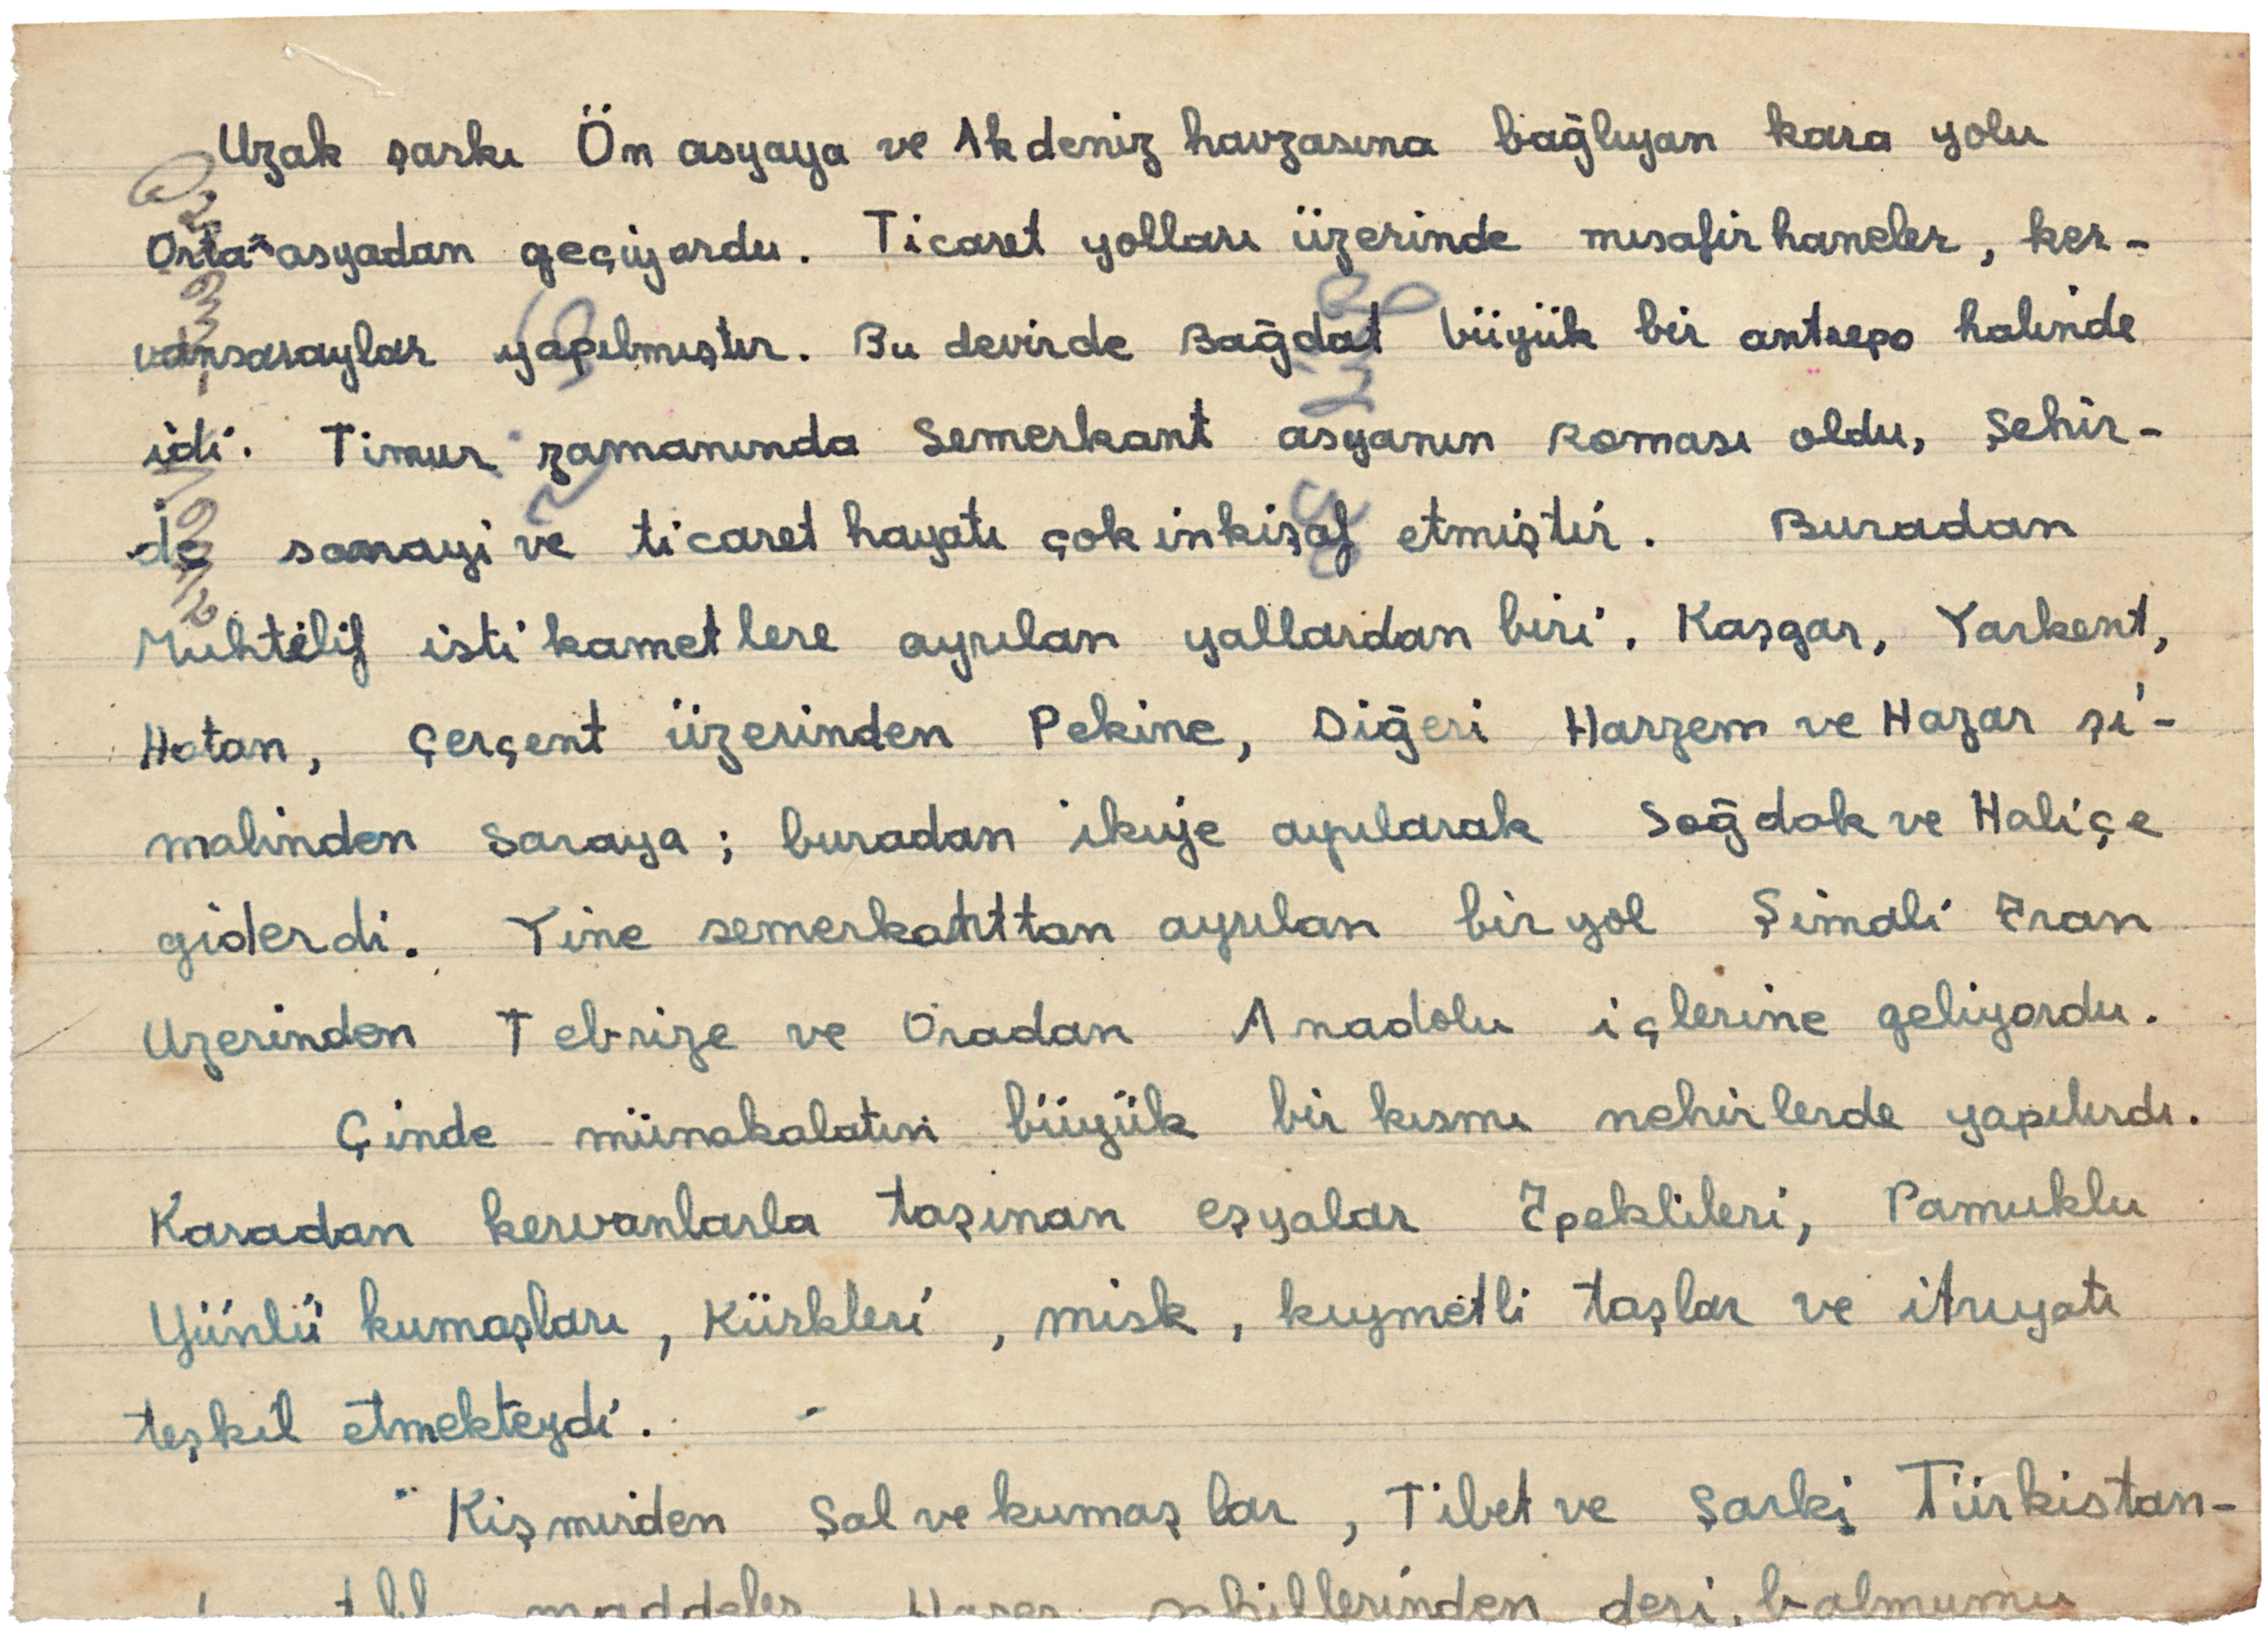 Uzak şarkı Ön asyaya ve Akdeniz havzasına bağlıyan kara yolu
Orta asyadan geçiyordu. Ticaret yolları üzerinde misafirhaneler, ker-
vansaraylar yapılmıştır. Bu devirde Bağdat büyük bir antrepo halinde
idi. Timur zamanında Semerkant asyanın Roması oldu, Şehir-
de sanayi ve ticaret hayatı çok inkişaf etmiştir. Buradan
Muhtelif istikametlere ayrılan yollardan biri. Kaşgar, Yarkent,
Hotan, Çerçent üzerinden Pekine, Diğeri Harzem ve Hazar şi-
malinden Saraya; buradan ikiye ayrılarak Soğdak ve Haliçe
giderdi. Yine semerkanttan ayrılan bir yol Şimali İran
Uzerinden Tebrize ve Oradan Anadolu içlerine geliyordu.
Çinde münakalatın büyük bir kısmı nehirlerde yapılırdı.
Karadan kervanlarla taşınan eşyalar İpeklileri, Pamuklu
Yünlü kumaşları, Kürkleri, misk, kıymetli taşlar ve itriyatı
teşkil etmekteydi.
Kişmirden Şal ve kumaşlar, Tibet ve Şarki Türkistan-
maddeler sahillerinden deri, balmumu